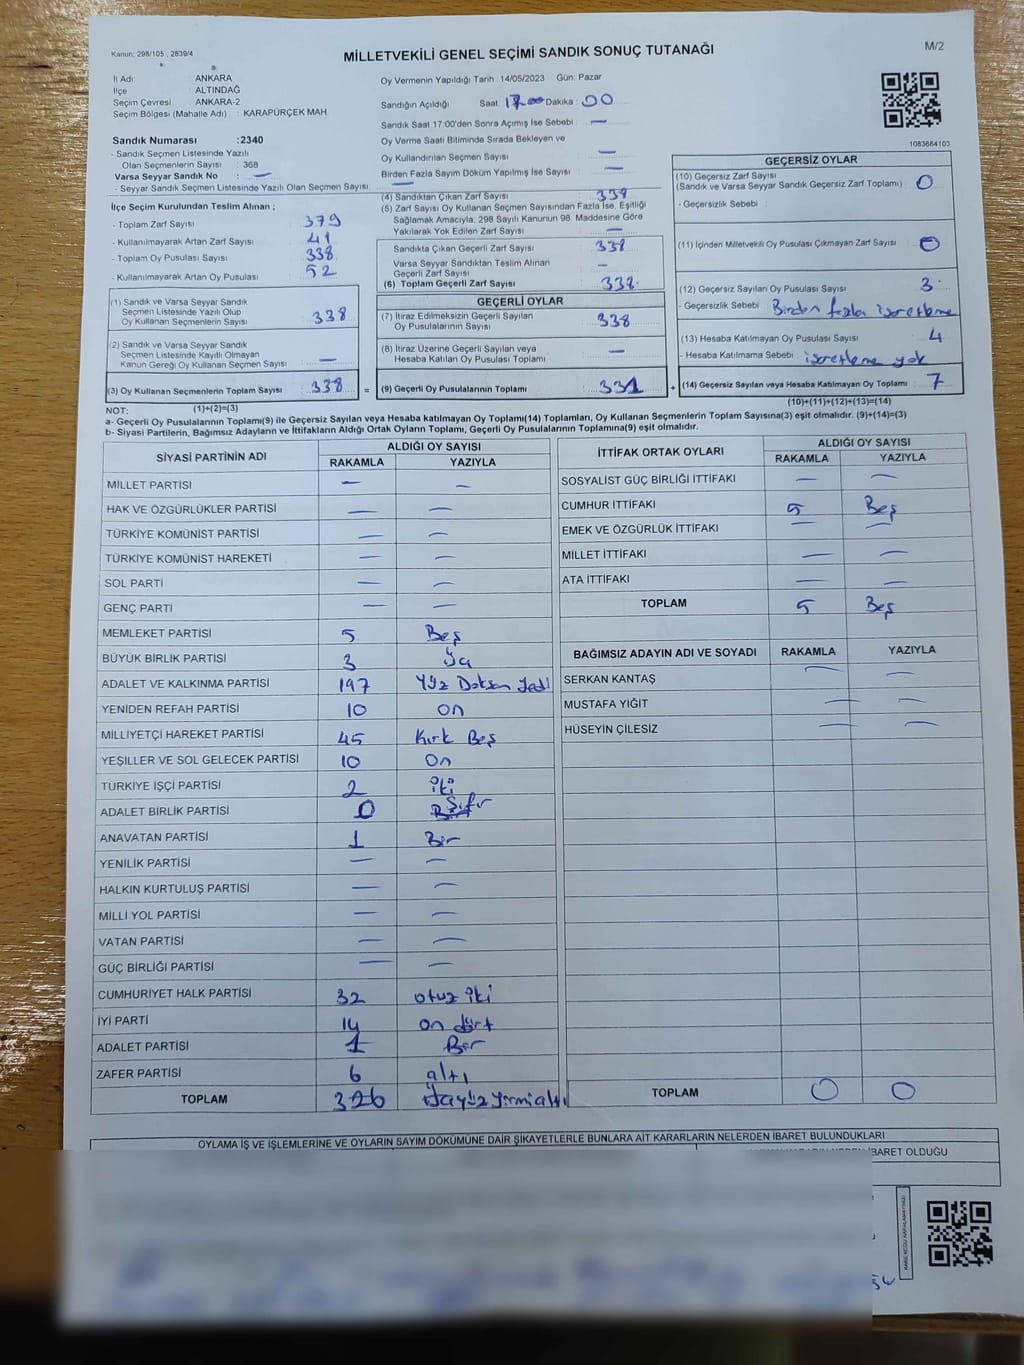 Kanun: 298/105 , 2839/4
MİLLETVEKİLİ GENEL SEÇİMİ SANDIK SONUÇ TUTANAĞI
M/2
İl Adı : ANKARA
İlçe : ALTINDAĞ
Seçim Çevresi : ANKARA-2
Seçim Bölgesi (Mahalle Adı) : KARAPÜRÇEK MAH.
Sandık Numarası :2340
- Sandık Seçmen Listesinde Yazılı
Olan Seçmenlerin Sayısı : 368
Varsa Seyyar Sandık No : —
- Seyyar Sandık Seçmen Listesinde Yazılı Olan Seçmen Sayısı: —
Oy Vermenin Yapıldığı Tarih :14/05/2023 Gün: Pazar
Sandığın Açıldığı Saat: 17.00 Dakika: 00
Sandık Saat 17:00'den Sonra Açımış İse Sebebi : —
Oy Verme Saati Bitiminde Sırada Bekleyen ve
Oy Kullandırılan Seçmen Sayısı : —
Birden Fazla Sayım Döküm Yapılmış İse Sayısı : —
1083684103
İlçe Seçim Kurulundan Teslim Alınan ;
- Toplam Zarf Sayısı : 379
- Kullanılmayarak Artan Zarf Sayısı : 41
- Toplam Oy Pusulası Sayısı : 338
- Kullanılmayarak Artan Oy Pusulası : 52
(1) Sandık ve Varsa Seyyar Sandık
Seçmen Listesinde Yazılı Olup
Oy Kullanan Seçmenlerin Sayısı : 338
(2) Sandık ve Varsa Seyyar Sandık
Seçmen Listesinde Kayıtlı Olmayan
Kanun Gereği Oy Kullanan Seçmen Sayısı : —
(3) Oy Kullanan Seçmenlerin Toplam Sayısı : 338
(4) Sandıktan Çıkan Zarf Sayısı : 338
(5) Zarf Sayısı Oy Kullanan Seçmen Sayısından Fazla İse, Eşitliği
Sağlamak Amacıyla; 298 Sayılı Kanunun 98. Maddesine Göre
Yakılarak Yok Edilen Zarf Sayısı : —
Sandıkta Çıkan Geçerli Zarf Sayısı : 338
Varsa Seyyar Sandıktan Teslim Alınan
Geçerli Zarf Sayısı : —
(6) Toplam Geçerli Zarf Sayısı : 338
GEÇERLİ OYLAR
(7) İtiraz Edilmeksizin Geçerli Sayılan
Oy Pusulalarının Sayısı : 338
(8) İtiraz Üzerine Geçerli Sayılan veya
Hesaba Katılan Oy Pusulası Toplamı : —
= (9) Geçerli Oy Pusulalarının Toplamı : 331
GEÇERSİZ OYLAR
(10) Geçersiz Zarf Sayısı
(Sandık ve Varsa Seyyar Sandık Geçersiz Zarf Toplamı) : 0
- Geçersizlik Sebebi :
(11) İçinden Milletvekili Oy Pusulası Çıkmayan Zarf Sayısı : 0
(12) Geçersiz Sayılan Oy Pusulası Sayısı : 3
- Geçersizlik Sebebi : Birden fazla işaretleme
(13) Hesaba Katılmayan Oy Pusulası Sayısı : 4
- Hesaba Katılmama Sebebi : işaretleme yok
+ (14) Geçersiz Sayılan veya Hesaba Katılmayan Oy Toplamı : 7
NOT: (1)+(2)=(3)
(10)+(11)+(12)+(13)=(14)
a- Geçerli Oy Pusulalarının Toplamı(9) ile Geçersiz Sayılan veya Hesaba katılmayan Oy Toplamı(14) Toplamları, Oy Kullanan Seçmenlerin Toplam Sayısına(3) eşit olmalıdır. (9)+(14)=(3)
b- Siyasi Partilerin, Bağımsız Adayların ve İttifakların Aldığı Ortak Oyların Toplamı, Geçerli Oy Pusulalarının Toplamına(9) eşit olmalıdır.
SİYASİ PARTİNİN ADI ALDIĞI OY SAYISI
RAKAMLA YAZIYLA
MİLLET PARTİSİ — —
HAK VE ÖZGÜRLÜKLER PARTİSİ — —
TÜRKİYE KOMÜNİST PARTİSİ — —
TÜRKİYE KOMÜNİST HAREKETİ — —
SOL PARTİ — —
GENÇ PARTİ — —
MEMLEKET PARTİSİ 5 Beş
BÜYÜK BİRLİK PARTİSİ 3
ADALET VE KALKINMA PARTİSİ 197 Yüz Doksan Yedi
YENİDEN REFAH PARTİSİ 10 On
MİLLİYETÇİ HAREKET PARTİSİ 45 Kırk Beş
YEŞİLLER VE SOL GELECEK PARTİSİ 10 On
TÜRKİYE İŞÇİ PARTİSİ 2 İki
ADALET BİRLİK PARTİSİ 0 Sıfır
ANAVATAN PARTİSİ 1 Bir
YENİLİK PARTİSİ — —
HALKIN KURTULUŞ PARTİSİ — —
MİLLİ YOL PARTİSİ — —
VATAN PARTİSİ — —
GÜÇ BİRLİĞİ PARTİSİ — —
CUMHURİYET HALK PARTİSİ 32 otuz iki
İYİ PARTİ 14 on dört
ADALET PARTİSİ 1 Bir
ZAFER PARTİSİ 6 altı
TOPLAM 326
İTTİFAK ORTAK OYLARI ALDIĞI OY SAYISI
RAKAMLA YAZIYLA
SOSYALİST GÜÇ BİRLİĞİ İTTİFAKI — —
CUMHUR İTTİFAKI 5 Beş
EMEK VE ÖZGÜRLÜK İTTİFAKI — —
MİLLET İTTİFAKI — —
ATA İTTİFAKI — —
TOPLAM 5 Beş
BAĞIMSIZ ADAYIN ADI VE SOYADI RAKAMLA YAZIYLA
SERKAN KANTAŞ — —
MUSTAFA YİĞİT — —
HÜSEYİN ÇİLESİZ — —
TOPLAM 0 0
OYLAMA İŞ VE İŞLEMLERİNE VE OYLARIN SAYIM DÖKÜMÜNE DAİR ŞİKAYETLERLE BUNLARA AİT KARARLARIN NELERDEN İBARET BULUNDUKLARI
İBARET OLDUĞU